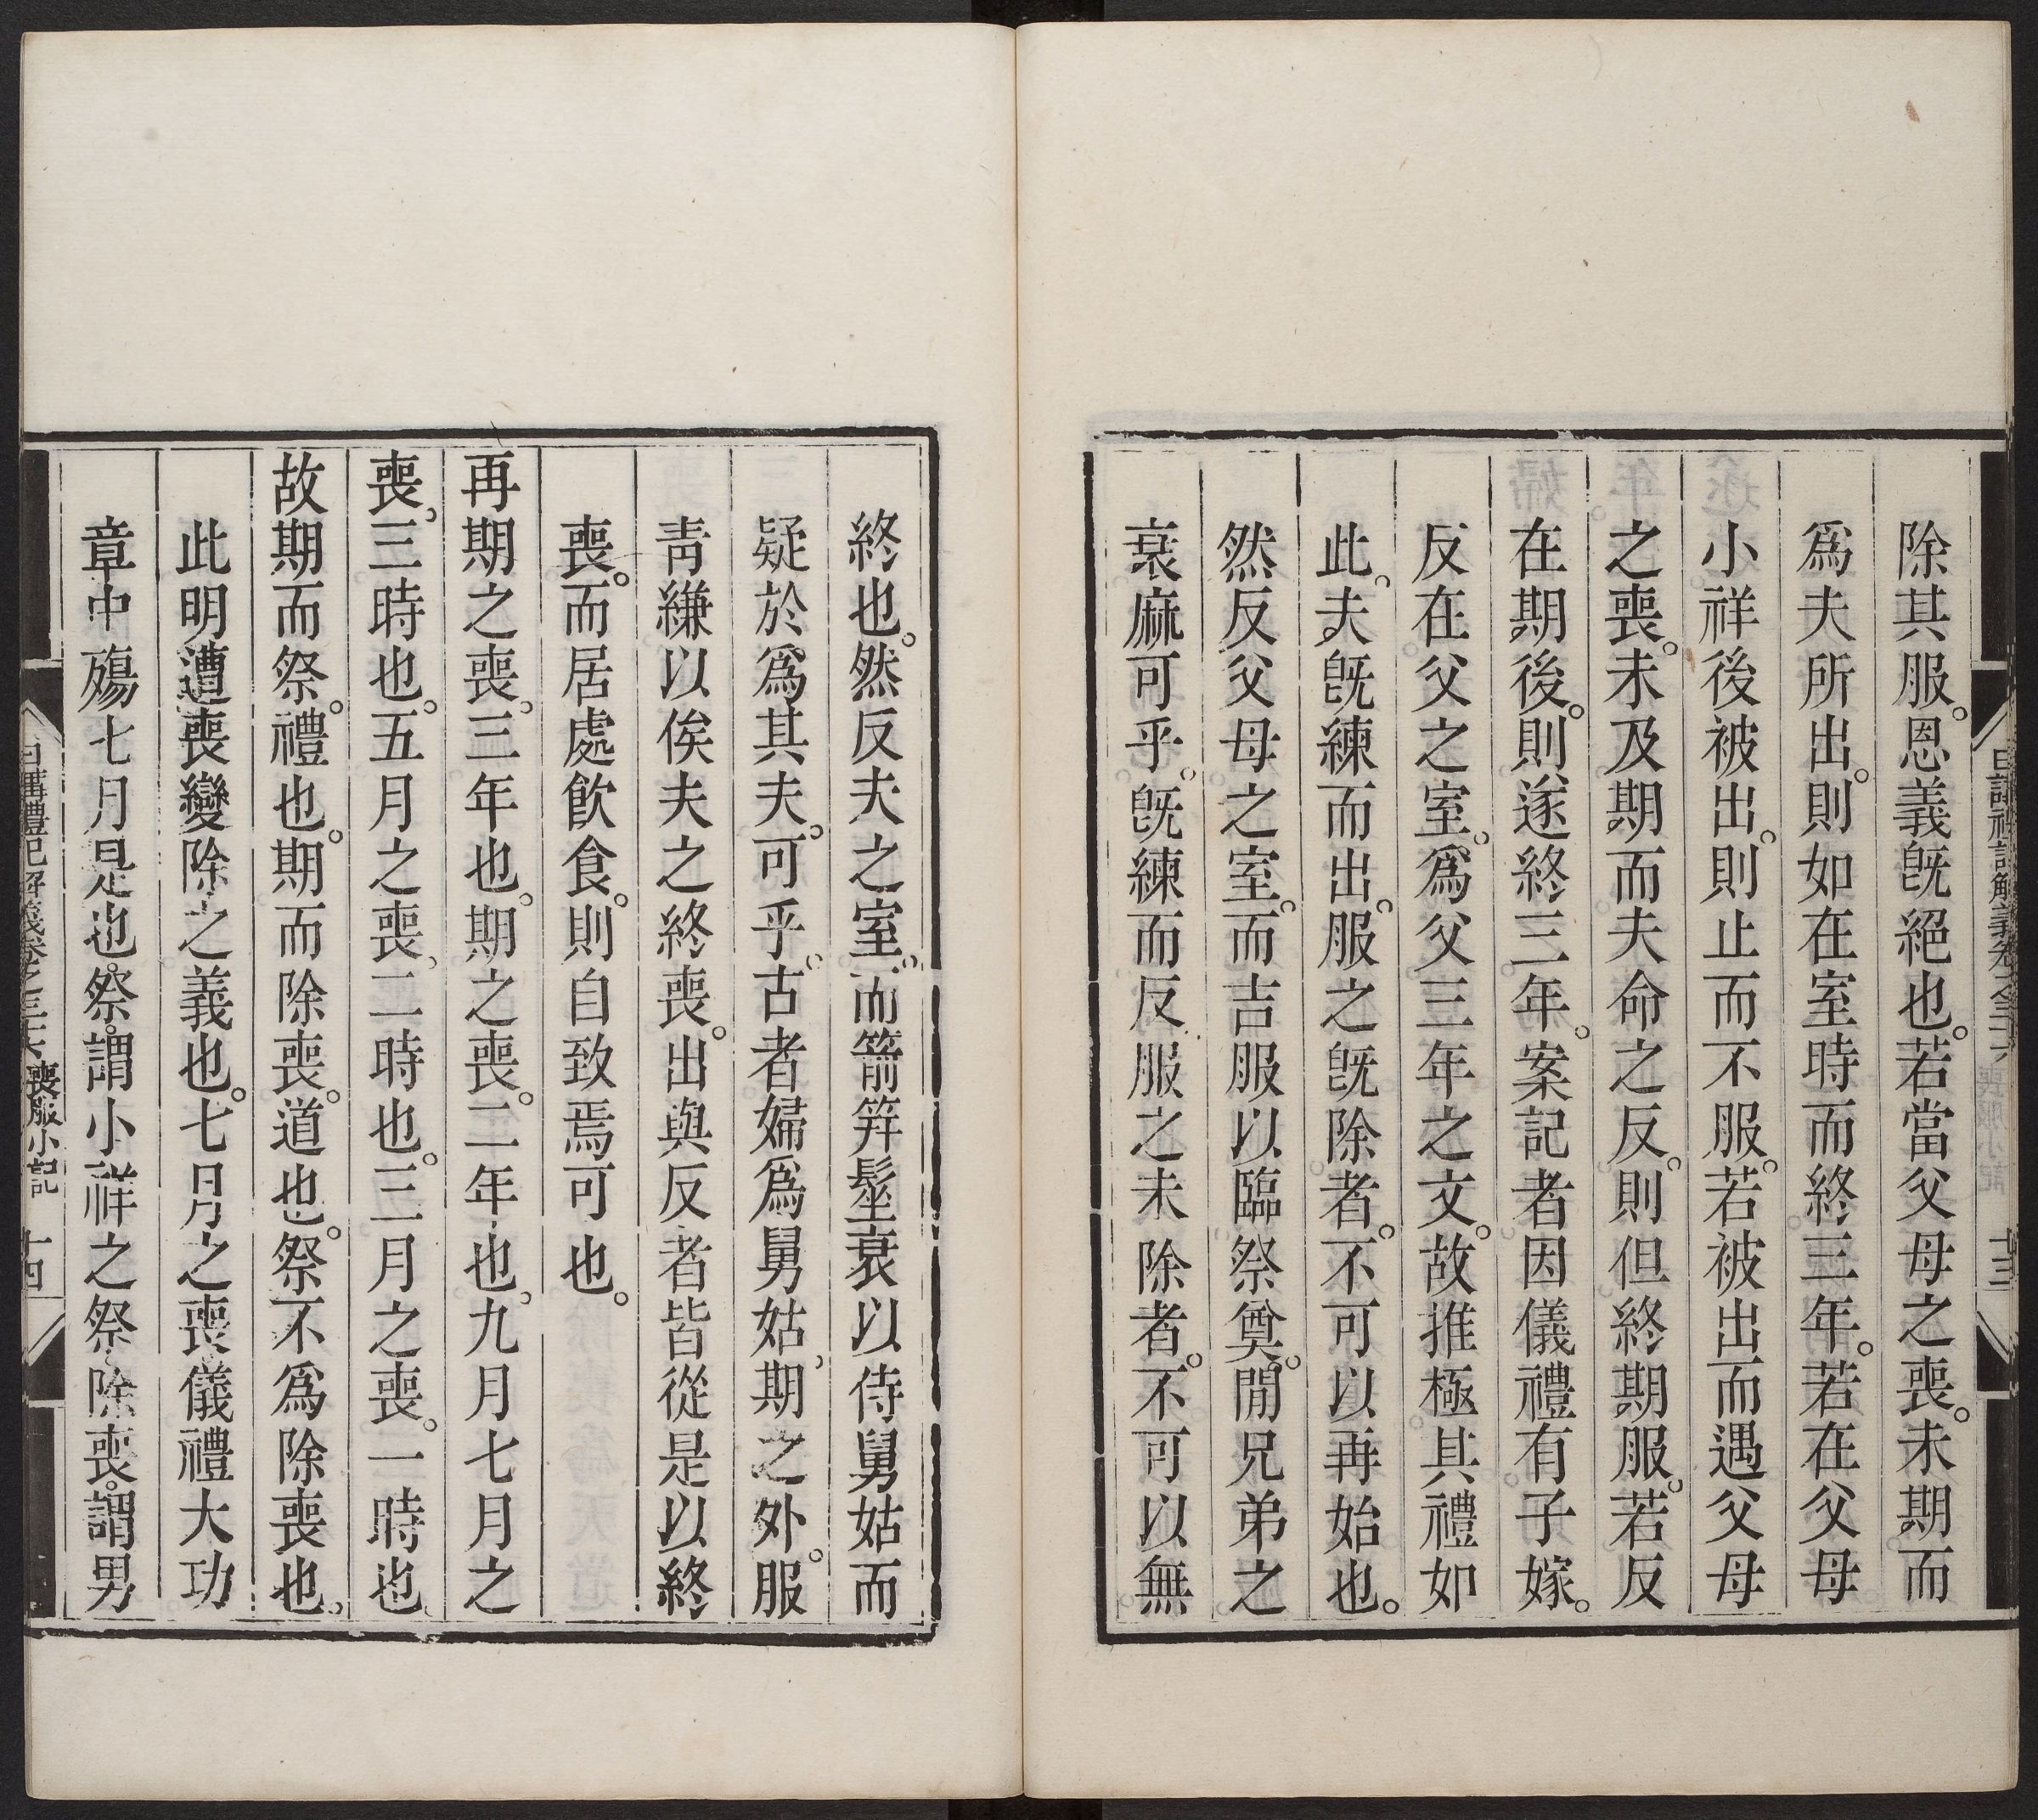 除其服。恩義旣絕也。若當父母之喪。未期而
爲夫所出。則如在室時而終三年。若在父母
小祥後被出。則止而不服。若被出而遇父母
之喪。未及期而夫命之反。則但終期服。若反
在期後。則遂終三年。案記者因儀禮有子嫁。
反在父之室。爲父三年之文。故推極其禮如
此。夫旣練而出。服之旣除者。不可以再始也。
然反父母之室。而吉服以臨祭奠。閒兄弟之
衰麻可乎。旣練而反服之未除者。不可以無
日講禮記解義卷之三十六 喪服小記 十三
終也。然反夫之室。而箭筓髽衰以侍舅姑而
疑於爲其夫。可乎。古者婦爲舅姑。期之外。服
靑縑以俟夫之終喪。出與反者皆從是以終
喪。而居處飮食。則自致焉可也。
再期之喪。三年也。期之喪。二年也。九月七月之
喪。三時也。五月之喪。二時也。三月之喪。一時也。
故期而祭。禮也。期而除喪。道也。祭不爲除喪也。
此明遭喪變除之義也。七月之喪儀禮大功
章中殤七月是也。祭。謂小祥之祭。除喪。謂男
日講禮記解義卷之三十六 喪服小記 十四